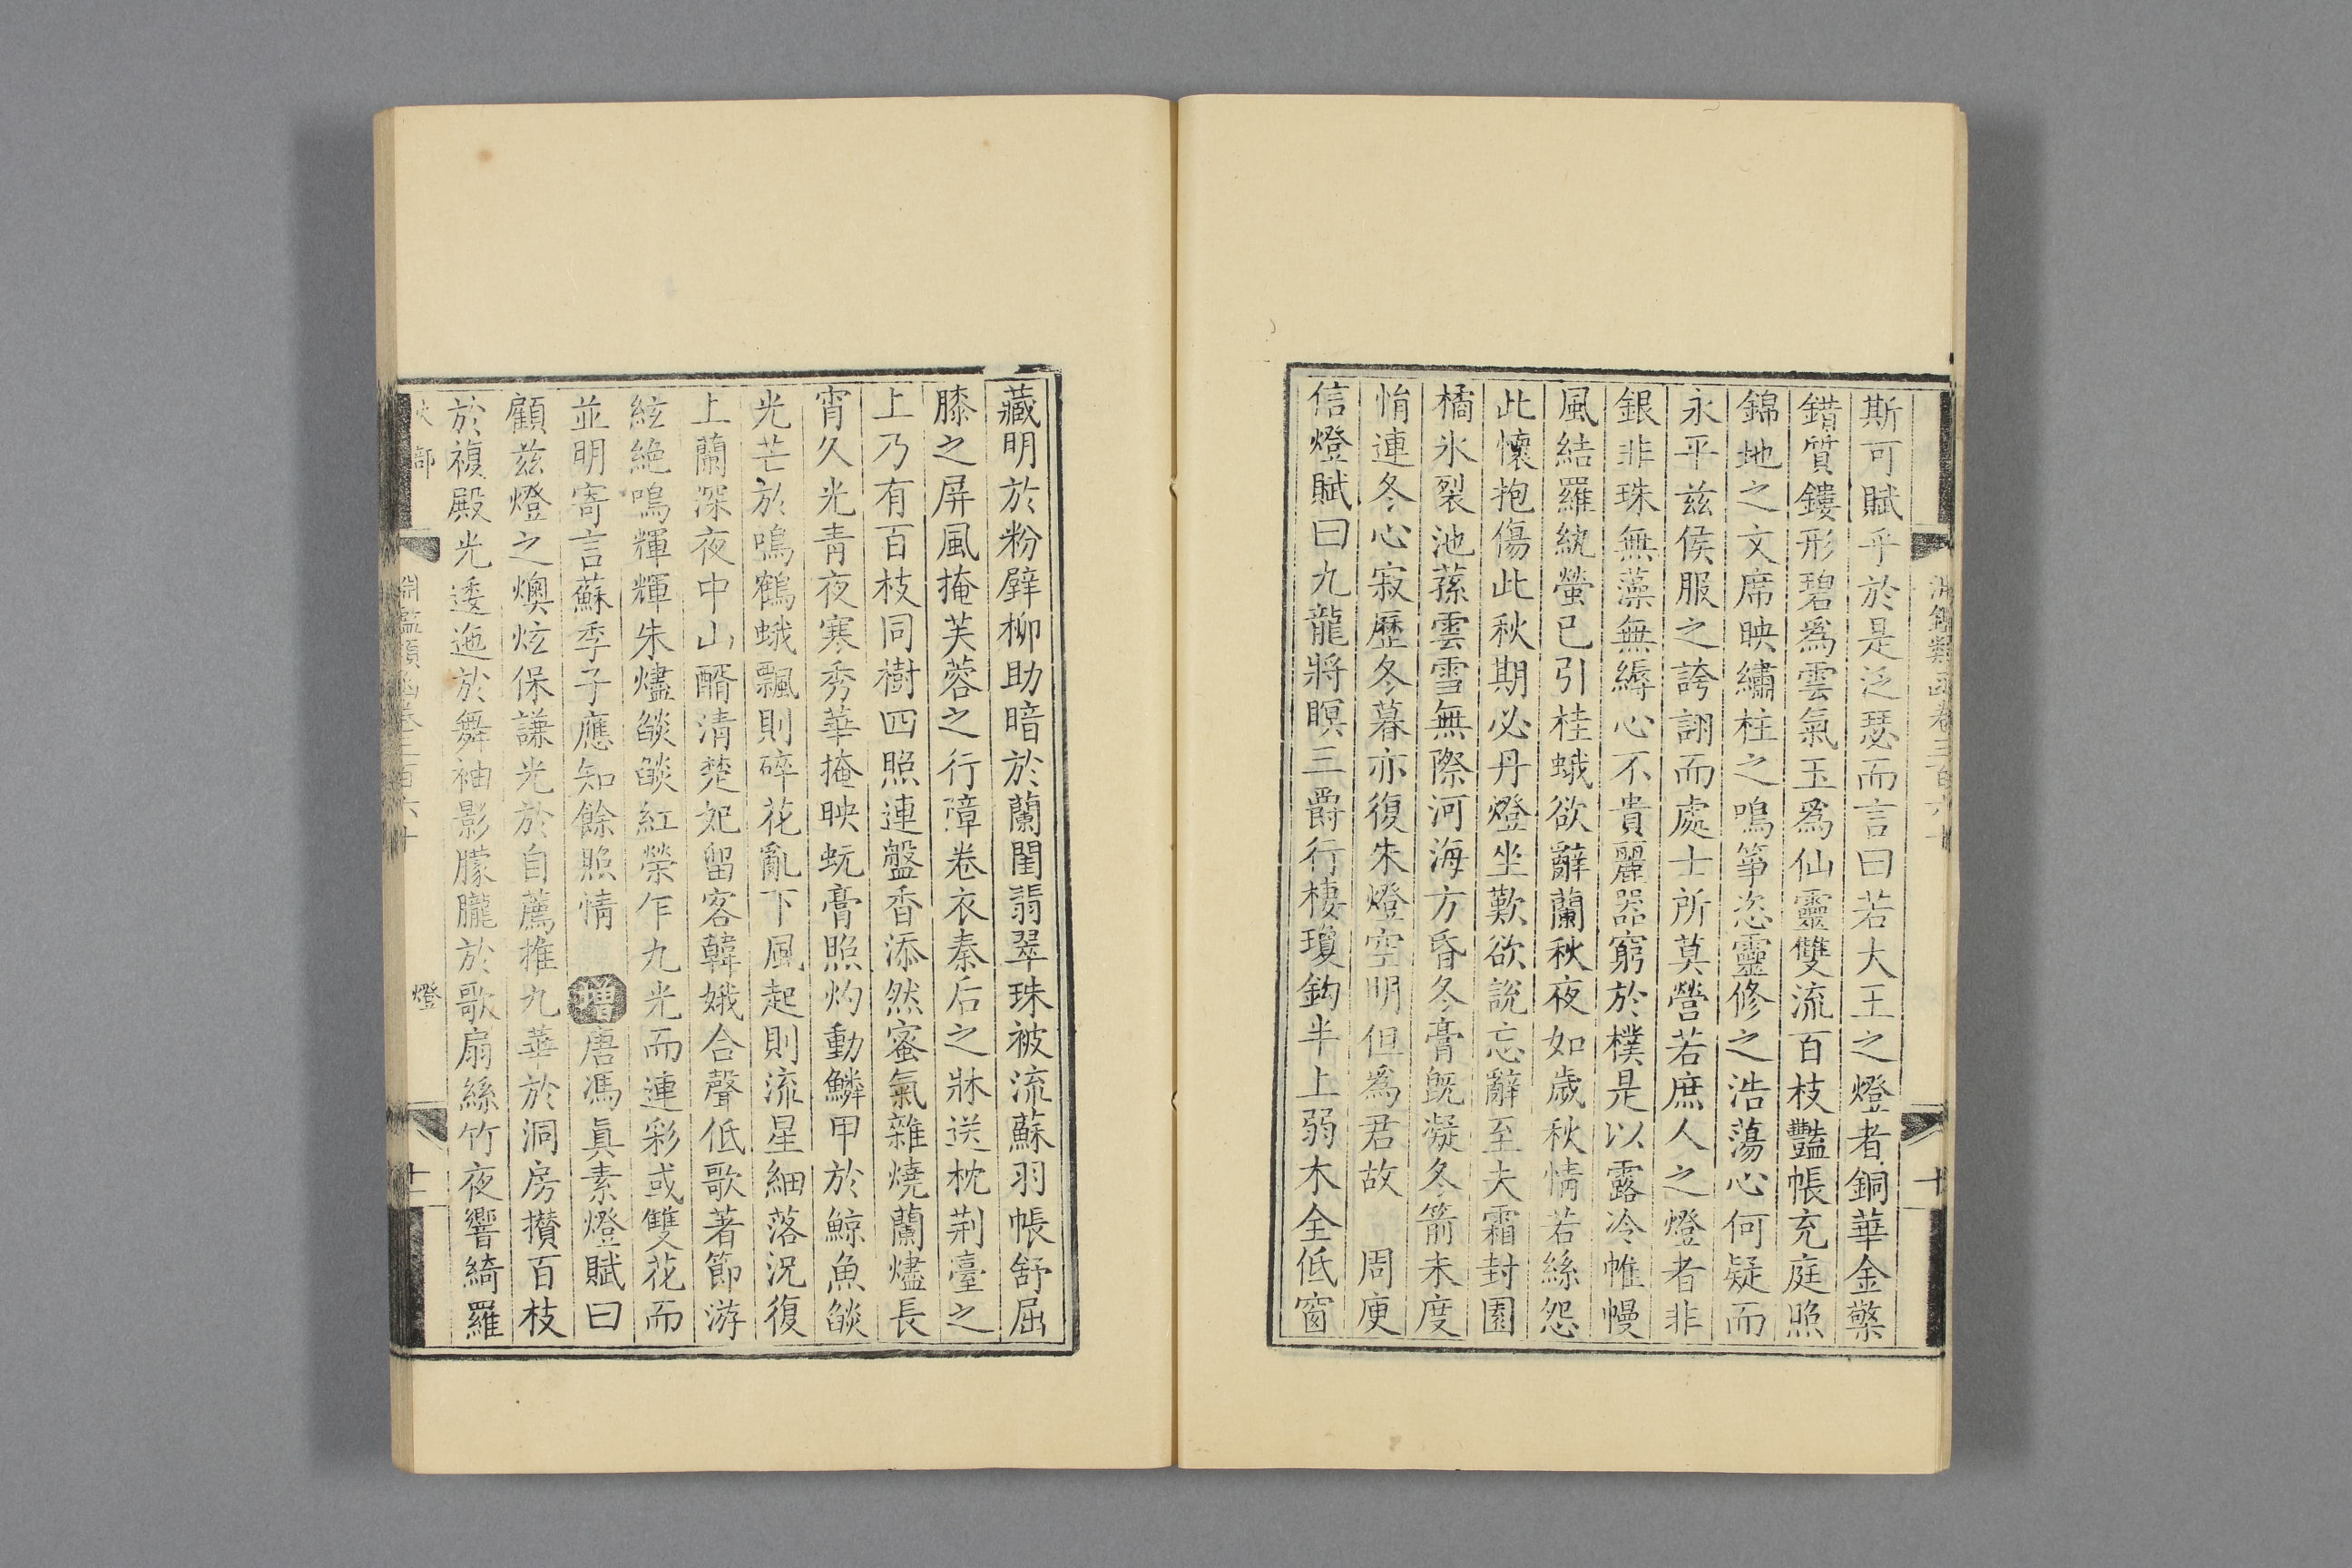 斯可賦乎於是泛瑟而言曰若大王之燈者銅華金檠
錯質鏤形碧爲雲氣玉爲仙靈雙流百枝豔帳充庭照
錦地之文席映繡柱之鳴筝恣靈修之浩蕩心何疑而
永平兹侯服之誇詡而處士所莫營若庶人之燈者非
銀非珠無藻無縟心不貴麗器窮於樸是以露冷帷幔
風結羅紈螢已引桂蛾欲辭蘭秋夜如歲秋情若絲怨
此懷抱傷此秋期必丹燈坐歎欲説忘辭至夫霜封園
橘氷裂池蓀雲雪無際河海方昏冬膏旣凝冬箭未度
悁連冬心寂歴冬暮亦復朱燈空明但爲君故　周庾
信燈賦曰九龍將暝三爵行棲瓊鈎半上弱木全低窗
藏明於粉壁柳助暗於蘭閨翡翠珠被流蘇羽帳舒屈
膝之屏風掩芙蓉之行障卷衣秦后之牀送枕荆臺之
上乃有百枝同樹四照連盤香添然蜜氣雜燒蘭燼長
宵久光青夜寒秀華掩映蚖膏照灼動鱗甲於鯨魚燄
光芒於鳴鶴蛾飄則碎花亂下風起則流星細落況復
上蘭深夜中山醑清楚妃留客韓娥合聲低歌著節游
絃絶鳴輝輝朱燼燄燄紅榮乍九光而連彩或雙花而
並明寄言蘇季子應知餘照情　增唐馮眞素燈賦曰
顧兹燈之燠炫保謙光於自薦推九華於洞房攢百枝
於複殿光逶迤於舞袖影朦朧於歌扇絲竹夜響綺羅
火部
淵鑑類函卷三百六十
燈
十一